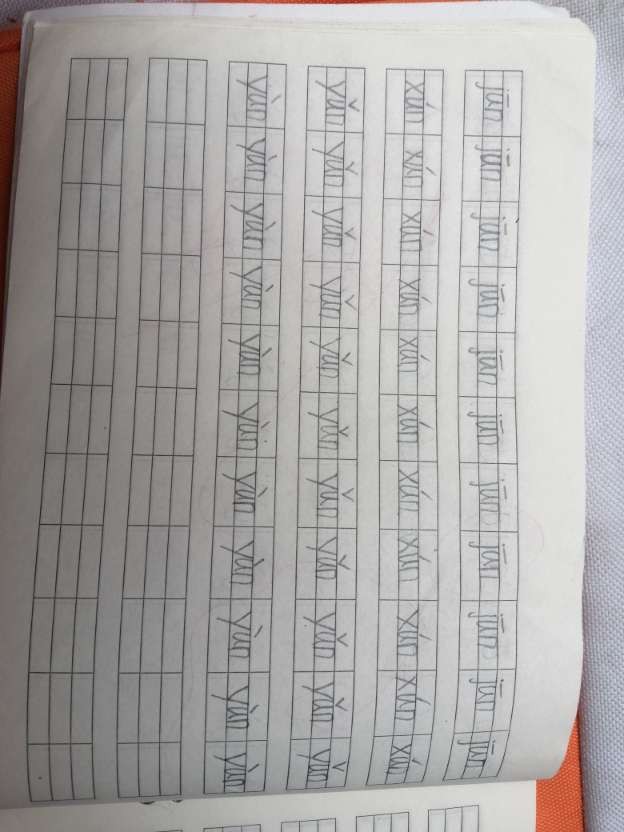 jūn jūn jūn jūn jūn jūn jūn jūn jūn jūn jūn
xún xún xún xún xún xún xún xún xún xún xún
yǔn yǔn yǔn yǔn yǔn yǔn yǔn yǔn yǔn yǔn yǔn
yùn yùn yùn yùn yùn yùn yùn yùn yùn yùn yùn